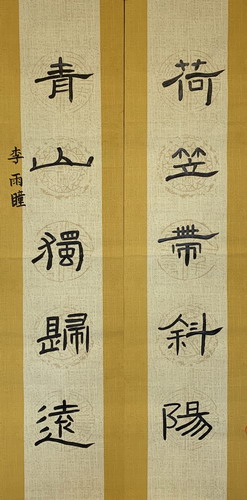 荷笠帶斜陽
青山獨歸遠
李雨瞳